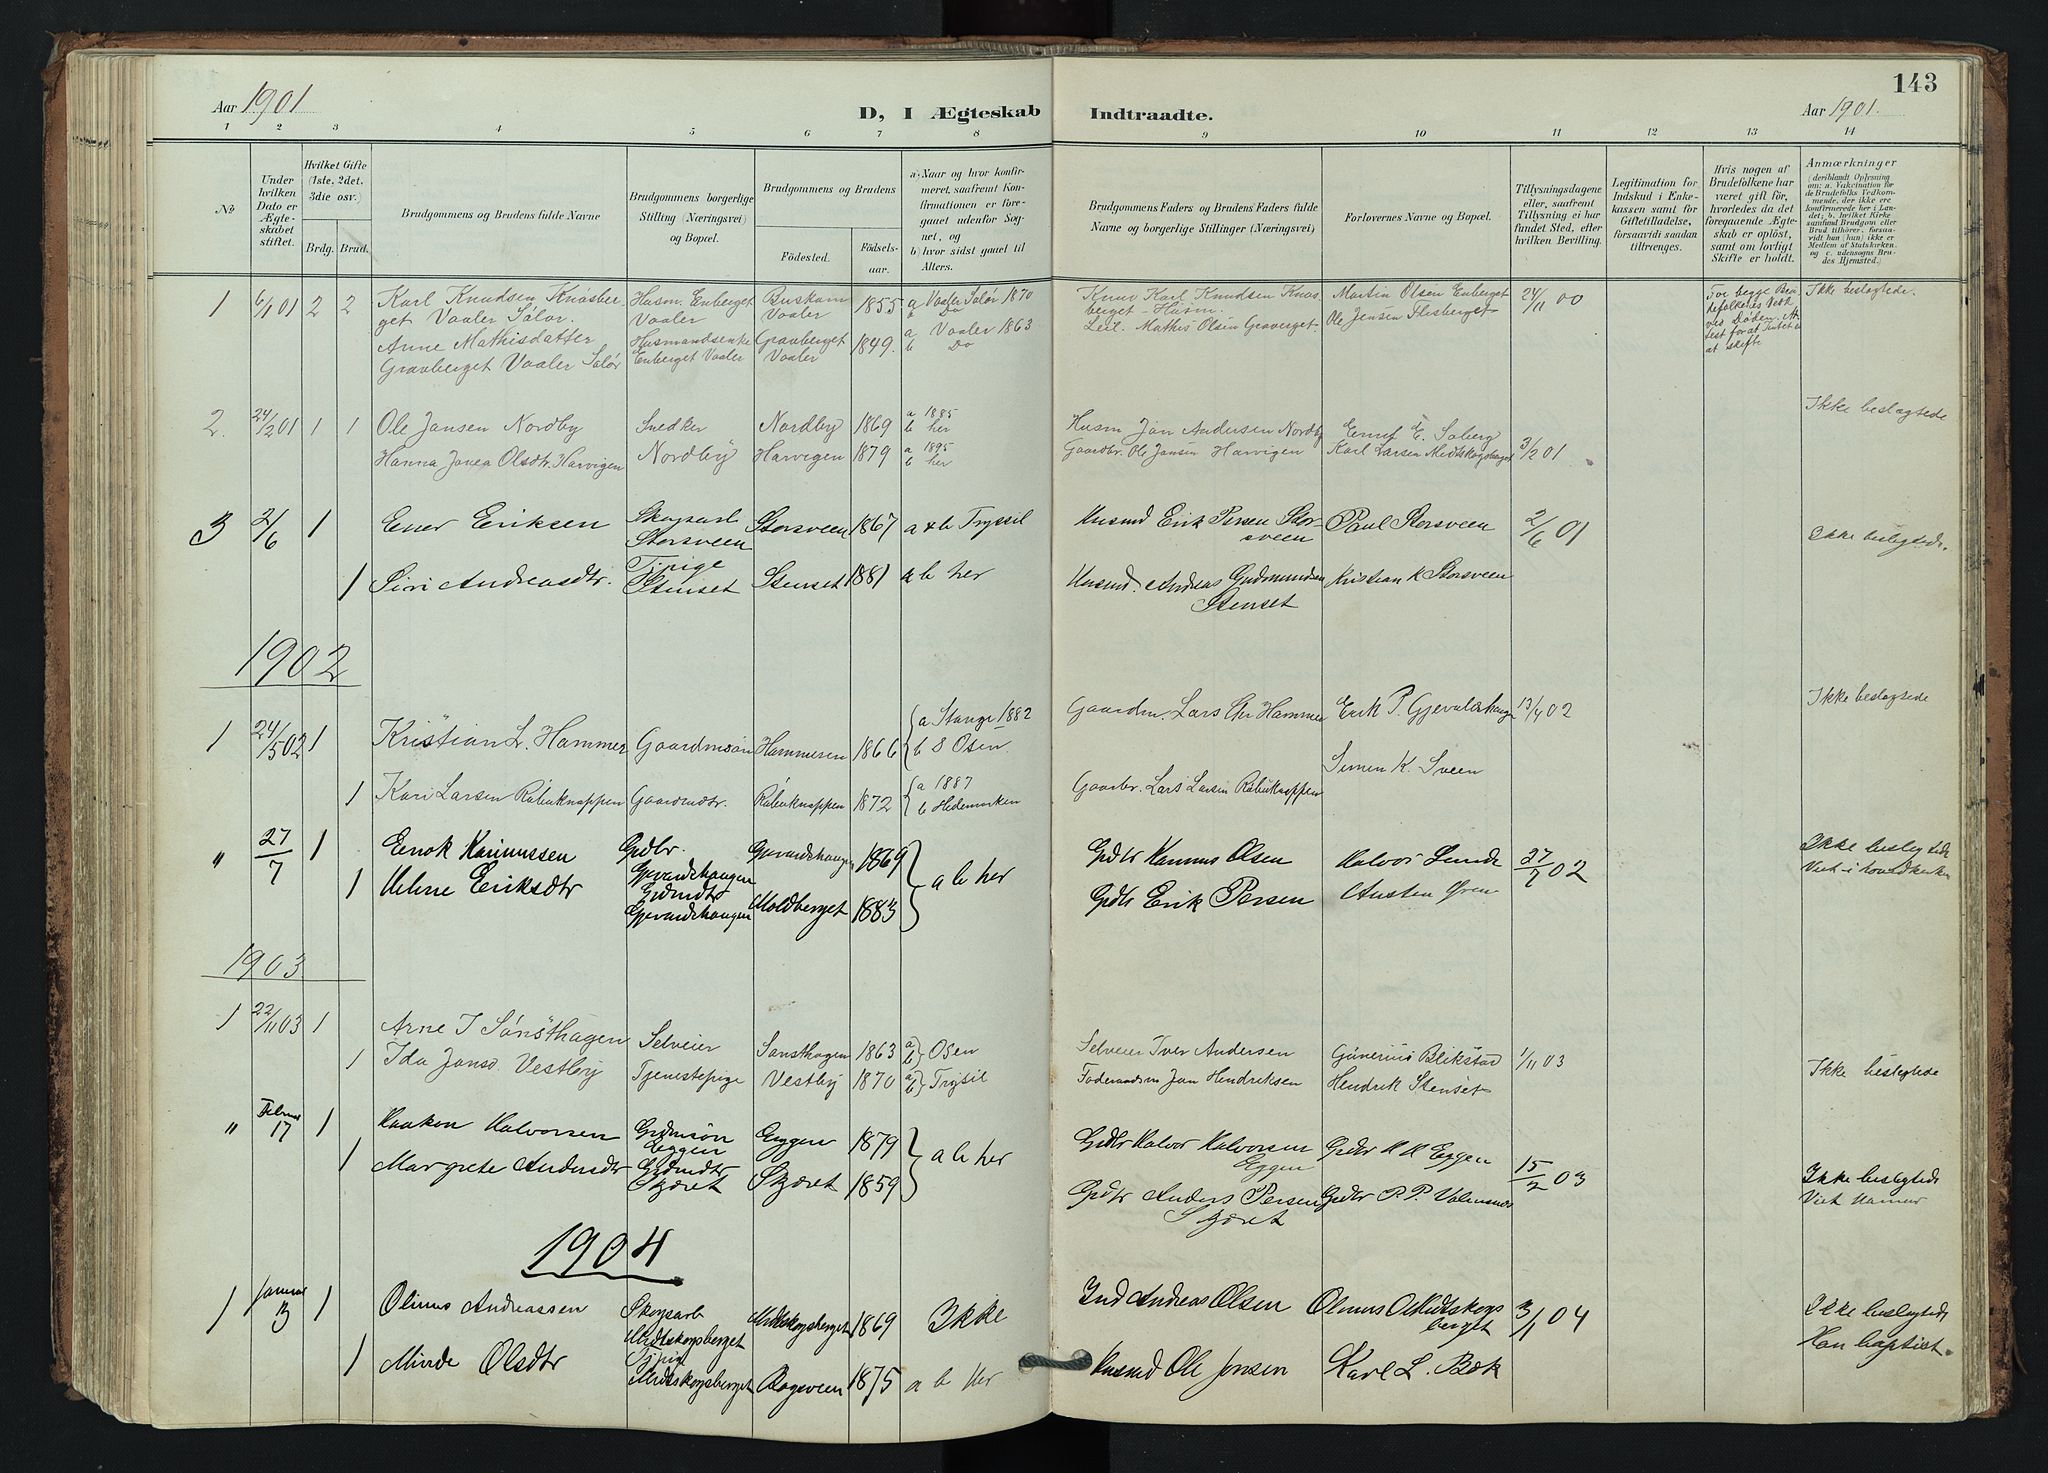 143
Aar 1901
D, I Ægteskab Indtraadte.
Aar 1901.
1 2 3 4 5 6 7 8 9 10 11 12 13 14
No
Under hvilken Dato er Ægteskabet stiftet.
Hvilket Gifte (1ste, 2det, 3die osv.)
Brdg. Brud.
Brudgommens og Brudens fulde Navne
Brudgommens borgerlige Stilling (Næringsvei) og Bopæl.
Brudgommens og Brudens
Födested.
Födselsaar.
a) Naar og hvor konfirmeret, saafremt Konfirmationen er foregaaet udenfor Sognet, og b) hvor sidst gaaet til Alters.
Brudgommens Faders og Brudens Faders fulde Navne og borgerlige Stillinger (Næringsvei)
Forlovernes Navne og Bopæl.
Tillysningsdagene eller, saafremt Tillysning ei har fundet Sted, efter hvilken Bevilling.
Legitimation for Indskud i Enkekassen samt for Giftetilladelse, forsaavidt saadan tiltrænges.
Hvis nogen af Brudefolkene har været gift før, hvorledes da det foregaaende Ægteskab er oplöst, samt om lovligt Skifte er holdt.
Anmærkninger (deriblandt Oplysning om: a. Vakcination for de Brudefolks Vedkommende, der ikke ere konfirmerede her i Landet; b. hvilket Kirkesamfund Brudgom eller Brud tilhörer, forsaavidt han (hun) ikke er Medlem af Statskirken, og c. udensogns Brudes Hjemsted.)
1 6/1 01 2 2 Karl Knudsen Knasber Husm. Enberget 1855 a Vaaler Solør 1870 Karl Knudsen Knas Martin Olsen Enberget 24/11 00 For begge Bru Ikke beslagtede.
get Vaaler Solør. Vaaler Vaaler b Do berget - Husm. Ole Jensen Flisberget
Arne Mathisdatter Husmandsenke Gravberget 1849. a Vaaler 1863 Mathis Olsen Graverget
Gravberget Vaaler Solør Enberget Vaaler Vaaler b Do at skifte
2 24/2 01 1 1 Ole Jansen Nordby Snedker Nordby 1869 a 1885 b her Husm Jan Andersen Nordby 3/2 01 Ikke beslagtede
Hanna Olsdtr. Harvigen Nordby Harvigen 1879 a 1895 b her Gaardbr. Ole Jansen Harvigen Karl Larsen Midtskogsberget
3 2/6 1 Ener Eriksen Skogsarb Storsveen Storsveen 1867 a & b Trysil Husmd Erik Persen Storsveen Paul Storsveen 2/6 01 Ikke beslegtede.
1 Siri Andreasdtr. Tjpige Stenset Stenset 1881 a b her Husmd. Andreas Gudmundsen Stenset Kristian K Storsveen
1902
1 24/5 02 1 Kristian L. Hammer Gaardmsøn Hammeren 1866 a Stange 1882 b S Osen. Gaardm. Lars Chr Hammer Erik P. Gjevaldshaugen 13/4 02 Ikke beslagtede
Simen K. Sveen
1 Kari Larsen Råbuknappen Gaardmdtr. Råbuknappen 1872 a 1887 b Hedemarken Gaarbr. Lars Larsen Råbuknappen
" 27/7 1 Enok Rasmussen Grdbr. Gjevardshaugen Gjevardshaugen 1869 a b her Grdbr Rasmus Olsen Halvor Lunde 27/7 02 Ikke beslegtede
1 Helene Eriksdtr Grdmdtr Gjevardshaugen Moldberget 1883 Grdbr Erik Persen Austen Øren Viet i hovedkirken
1903
1 22/11 03 1 Arne I Sønsthagen Selveier Sønsthagen 1863 a b Osen Selveier Iver Andersen Günerius Blikstad 1/11 03
1 Ida Jansd. Vestby Tjenestepige Vestby 1870 a b Trysil Føderaadsm Jan Hendriksen Hendrik Stenset Ikke beslegtede
" Februar 17 1 Haakon Halvorsen Grdmsøn Eggen Eggen 1879 a b her Grdbr Halvor Halvorsen Eggen Grdbr H H Eggen 15/2 03
1 Margrete Andersdtr Grdmdtr Skjæret Skjæret 1859 Grdbr Anders Persen Skjæret Grdbr P. P. Ikke beslegtede
Viet
1904
1 Januar 3 1 Olinus Andreassen Skogsarb Midtskogsberget Midtskogsberget 1869 Ikke Ind Andreas Olsen Olinus O Midtskogsberget 3/1 04 Ikke beslegtede
Han baptist.
1 Minda Olsdtr Tjpige Midtskogsberget Bogsveen 1875 a b Her Husmd Ole Jensen Karl L. Bæk